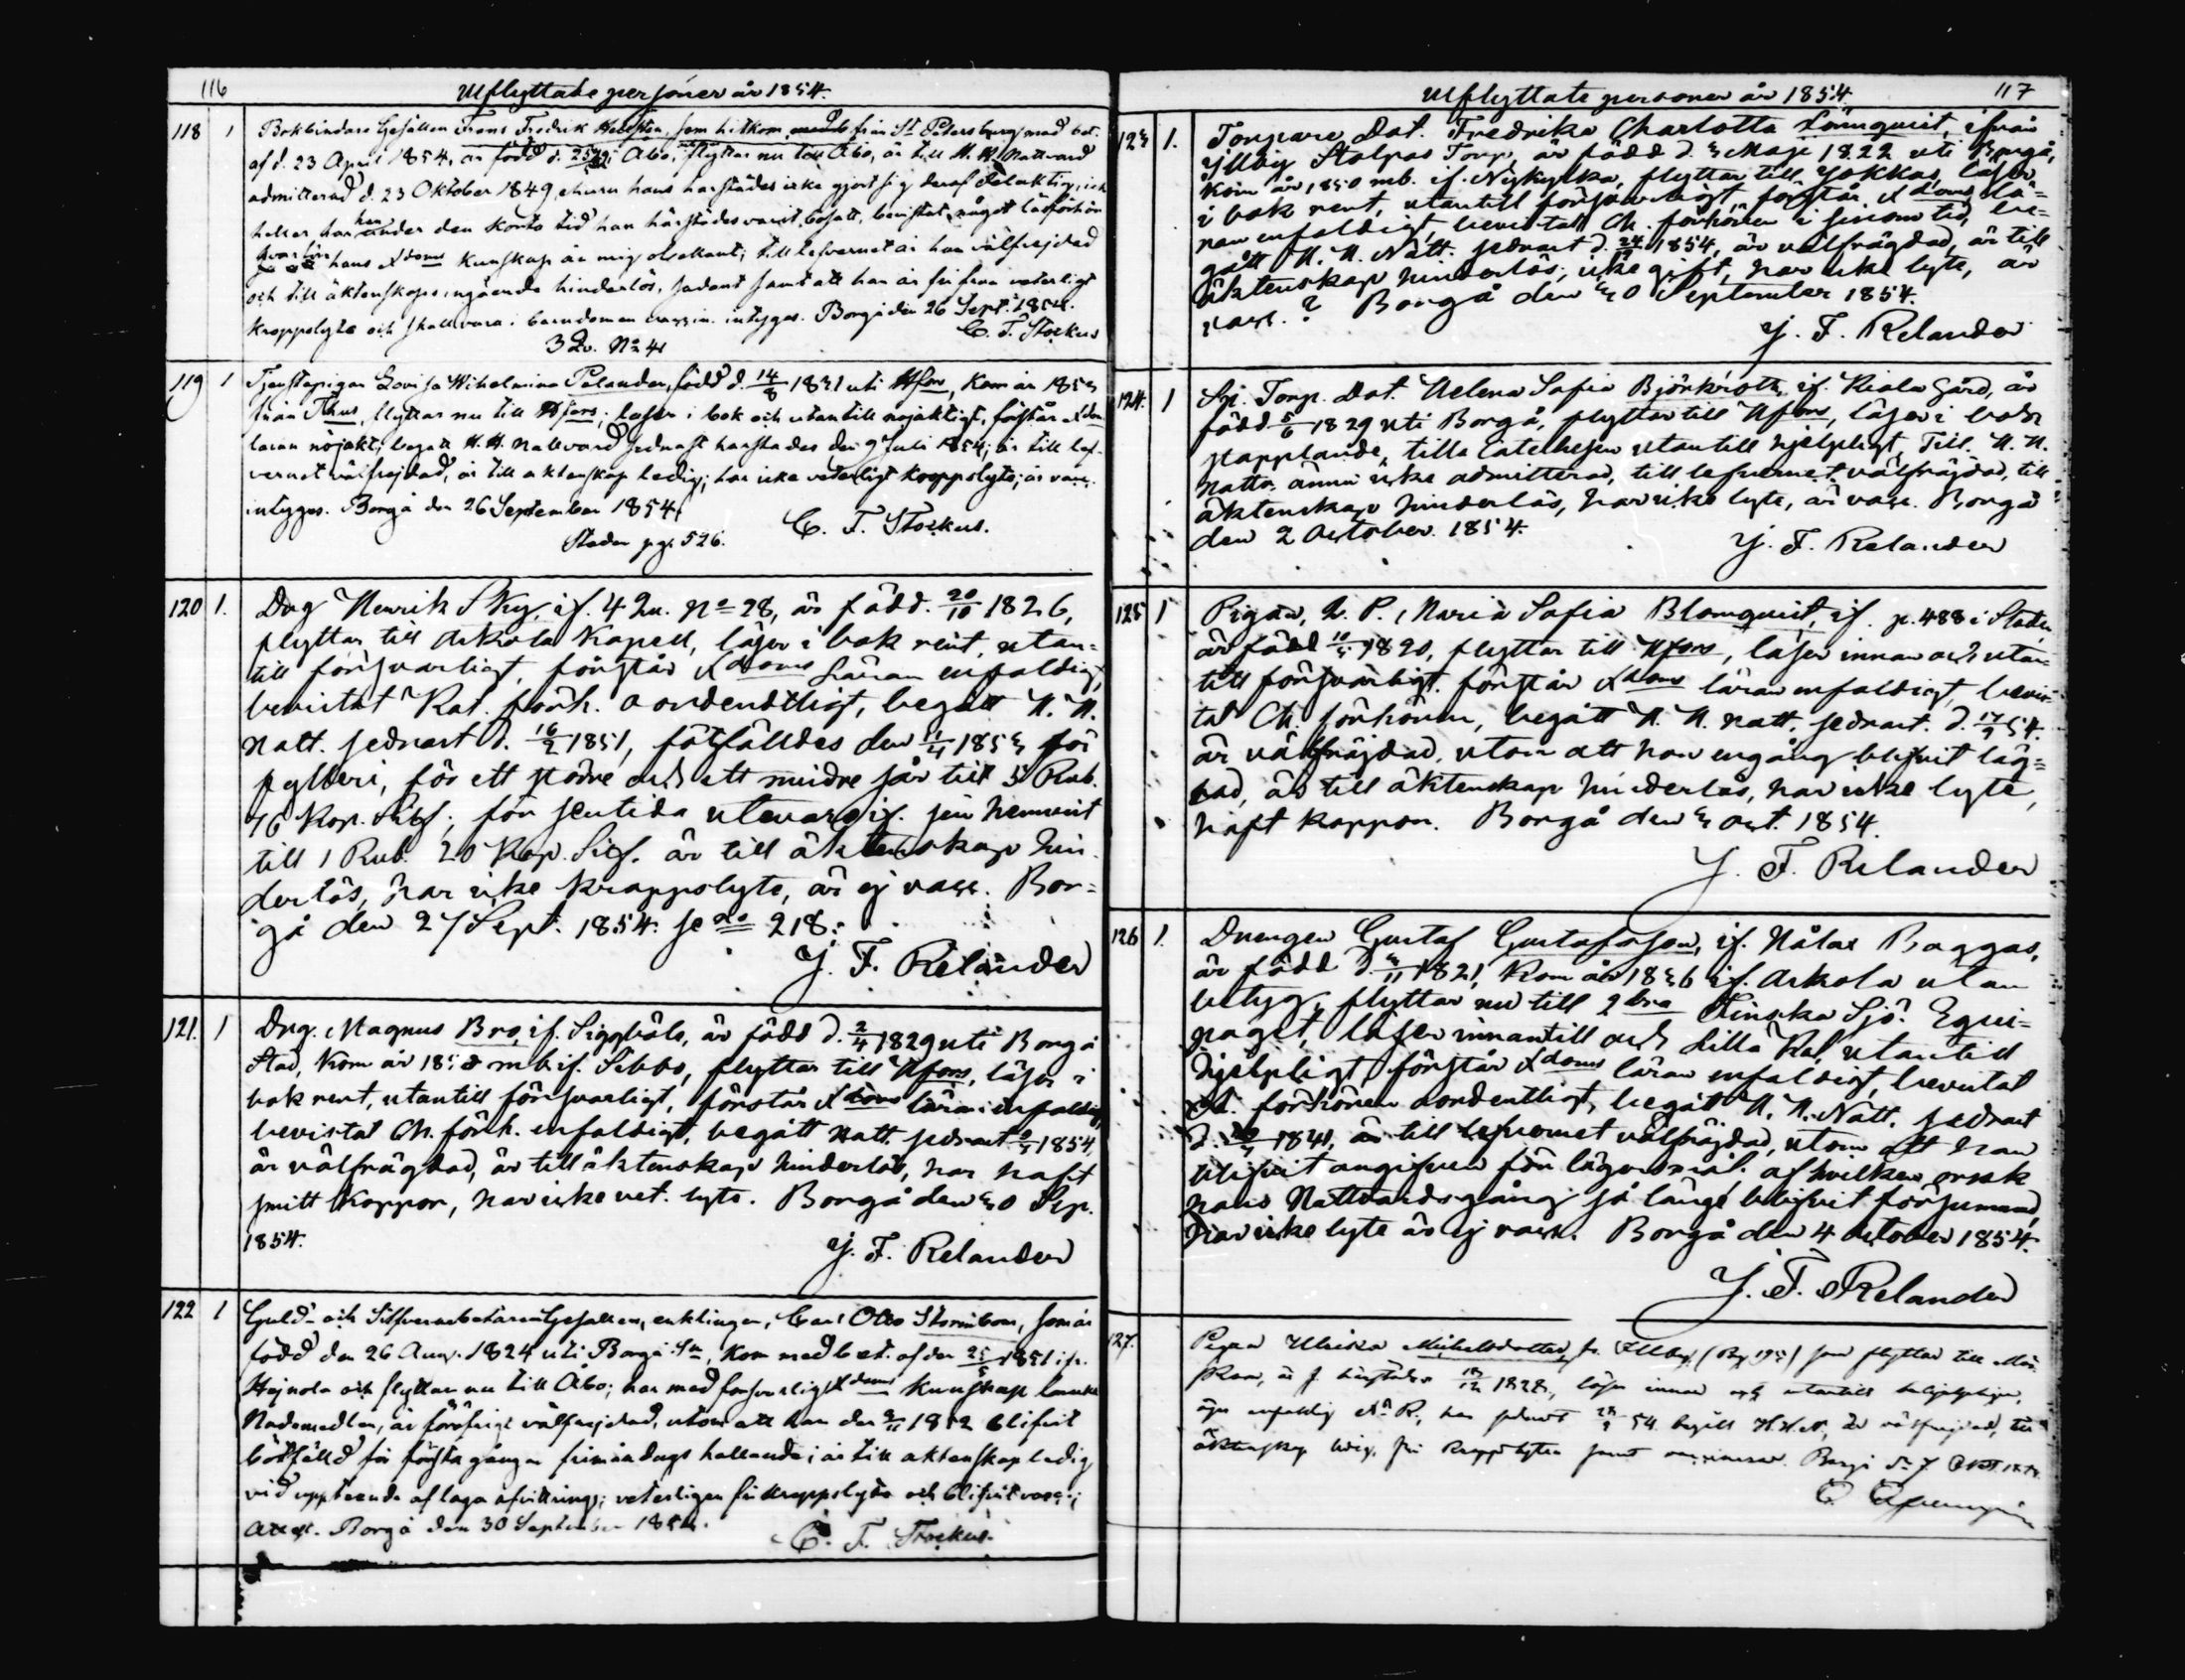 116
Utflyttade personer år 1854.
118 1 Bokbindare Gesällen Frans Fredrik Hellsten, som hitkom från St Petersburg med bet.
af d. 23 April 1854, är född d. i Åbo, flyttar nu till Åbo, är till H. H. Nattvard
admitterad d. 23 Oktober 1849, churu hans härstädes icke gjort sig deraf delaktig, ick
heller har han under den korta tid han härstädes varit bosatt, bevistat något läsförhör
hans Xdoms kunskap är mig obekant; till lefvernet är han välfrejdad
och till äktenskaps ingående hinderlös, sådant samt att han är fri från veterligt
kroppslyte och skall vara i barndomen vaccin. intygas. Borgå den 26 Sept. 1854.
3 Qv. No 41 C. F. Stockus
119 1 Tjenstepigan Lovisa Wilhelmina Pelander, född d. 14/8 1831 uti Hfors, kom år 1853
från Thus, flyttar nu till Hfors; läser i bok och utantill nöjaktigt, förstår Xdom
läran nöjakt; begått H. H. Nattvard sednast härstädes den 9 Juli 1854; är till lef-
vernet välfrejdad, är till äktenskap ledig; har icke veterligt kroppslyte; är vacc.
intygas. Borgå den 26 September 1854.
Staden pg. 526. C. F. Stockus.
120 1. Drg Henrik Sky, if. 4 Qu. No 28, är född. 20/10 1826,
flyttar till Askola Kapell, läser i bok rent, utan-
till försvarligt, förstår Xdoms Läran enfaldigt,
bevistat Kat. förh. oordendtligt, begått H. H.
Natt. sednast d. 16/2 1851, fälldes den 11/4 1853 för
fylleri, för ett större och ett mindre sår till 5 Rub.
76 Kop. Silf; för sentida utevaro if. sin hemvist
till 1 Rub. 20 Kop. Silf. är till äktenskap hin-
derlös, har icke kroppslyte, är ej vacc. Bor-
gå den 27 Sept. 1854. se no 218.
J. F. Relander
121. 1 Drg. Magnus Bro, if. Siggböle, är född d. 2/4 1829 uti Borgå
Stad, kom år m b if. Sibbo, flyttar till Hfors, läser i
bok rent, utantill försvarligt, förstår Xdoms läran enfaldigt,
bevistat Ch. förh. enfaldigt, begått Natt. sednast 1854,
är välfrägdad, är till äktenskap hinderlös, har haft
smitt koppor, har icke vet. lyte. Borgå den 30 Sep.
1854. J. F. Relander
122 1 Guld- och Silfverarbetaren Gesällen, enklingen, Carl Otto Strömbom, som är
född den 26 Aug. 1824 uti Borgå Sn, kom med bet. af den 25/5 1851 if.
Hejnola och flyttar nu till Åbo; har med försvarligt Xdoms kunskap
Nademedlen, är för öfrigt välfrejdad, utom att han den 1852 blifvit
bötfälld för första gången frimåndags hållande; är till äktenskap ledig
vid uppteende af laga afvittring; veterligen fri kroppslyte och blifvit vacc;
Attest. Borgå den 30 September 1854. C. F. Stockus.
Utflyttade personer år 1854. 117
123 1. Torpare Dot. Fredrika Charlotta Lönnquist, ifrån
Illby Stolpas Torp, är född d. 3 Maji 1822 uti Borgå,
kom år 1850 mb. if. Nykyrka, flyttar till Jokkas, läser
i bok rent, utantill försvarligt, förstår Xdoms lä-
ran enfaldigt, bevistat Ch. förhören i sinom tid, be-
gått H. H. Natt. sednast d. 24/9 1854, är välfrägdad, är till
äktenskap hinderlös, icke gift, har icke lyte, är
vacc. ? Borgå den 30 September 1854.
J. F. Relander
124. 1 Sp. Torp. Dot. Helena Sofia Björkroth, if. Kiala Gård, är
född 5/6 1829 uti Borgå, flyttar till Hfors, läser i bok
stapplande, lilla Catechesen utantill hjelpligt, Till H. H.
Natt. ännu icke admitterad, till lefvernet välfräjdad, till
äktenskap hinderlös, har icke lyte, är vacc. Borgå
den 2 October. 1854.
J. F. Relander
125 1 Pigan, Maria Sofia Blomquist, if. p. 488 i Staden
är född 1820, flyttar till Hfors, läser innan och utan-
till försvarligt, förstår Xdoms läran enfaldigt, bevis-
tat Ch. förhören, begått H. H. Natt. sednast. d. 54.
är välfräjdad, utom att hon engång blifvit läg-
rad, är till äktenskap hinderlös, har icke lyte,
haft koppor. Borgå den 3 Oct. 1854.
J. F. Relander
126 1. Drengen Gustaf Gustafsson, if. Baggas,
är född d. 3/11 1821, kom år 1836 if. Askola utan
betyg, flyttar nu till 2dra Finska Sjö Equi-
paget, läser innantill och Lilla Kat. utantill
hjelpligt, förstår Xdoms läran enfaldigt, bevistat
förhören oordentligt, begått H. H. Natt. sednast
d. 1841, är till lefvernet välfräjdad, utom att han
blifvit angifven för lägersmål, af hvilken orsak
hans Nattvardsgång så länge blifvit försummad,
har icke lyte är ej vacc. Borgå den 4 October 1854.
J. F. Relander
127. Pigan Ulrika Michelsdotter, fr. Illby som flyttar till
är f. härstädes 1828, läser innan och utantill
enfaldig har sednast 54 begått H. H. N., är välfrejdad, till
äktenskap ledig, fri kroppslyten samt vaccinerad. Borgå d. 7 Okt. 1854.